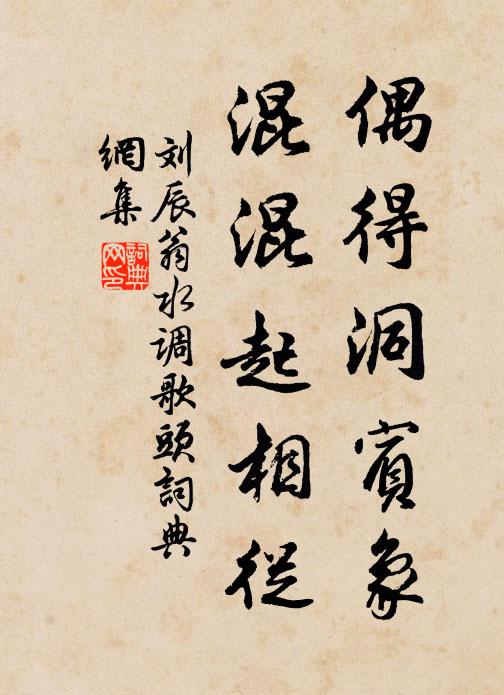 偶得洞賓象
混混起相從
刘辰翁水调歌頭詞典
網集
詞典
网印